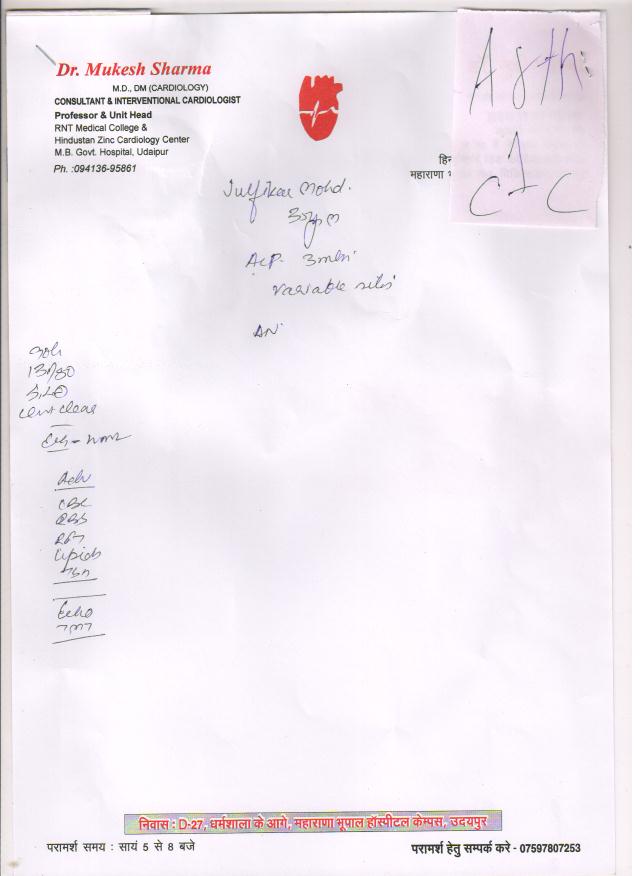 Dr. Mukesh Sharma
M.D., DM (CARDIOLOGY)
CONSULTANT & INTERVENTIONAL CARDIOLOGIST
Professor & Unit Head
RNT Medical College &
Hindustan Zinc Cardiology Center
M.B. Govt. Hospital, Udaipur
Ph. :094136-95861
हिन
महाराणा भ
Julfikar Mohd.
ACP- 3mln
Variable sites
AN
130/80
S1S2
Cent clear
ECG - NML
Adv
CBC
RBS
RFT
Lipids
TSH
Echo
TMT
निवास : D-27, धर्मशाला के आगे, महाराणा भूपाल हॉस्पीटल केम्पस, उदयपुर
परामर्श समय : सायं 5 से 8 बजे
परामर्श हेतु सम्पर्क करे - 07597807253